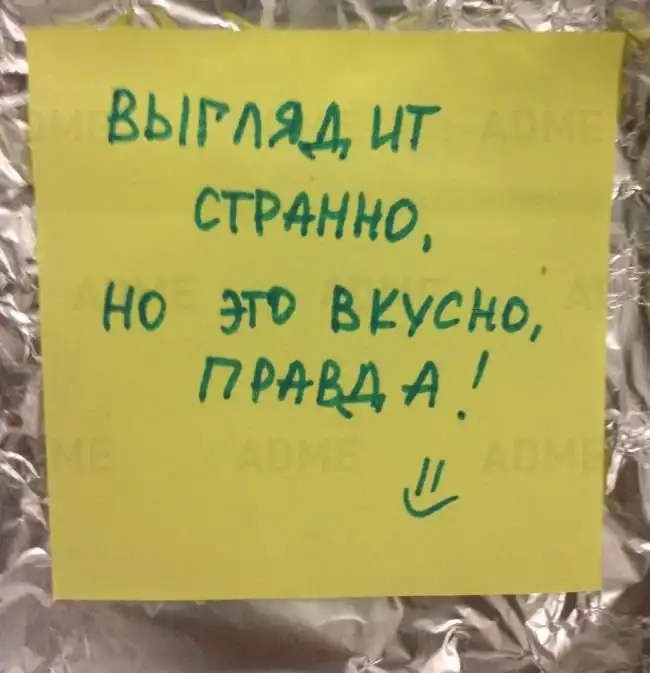 ВЫГЛЯДИТ
СТРАННО,
НО ЭТО ВКУСНО,
ПРАВДА!
ADME ADME
ADME ADME A
ME ADME ADME